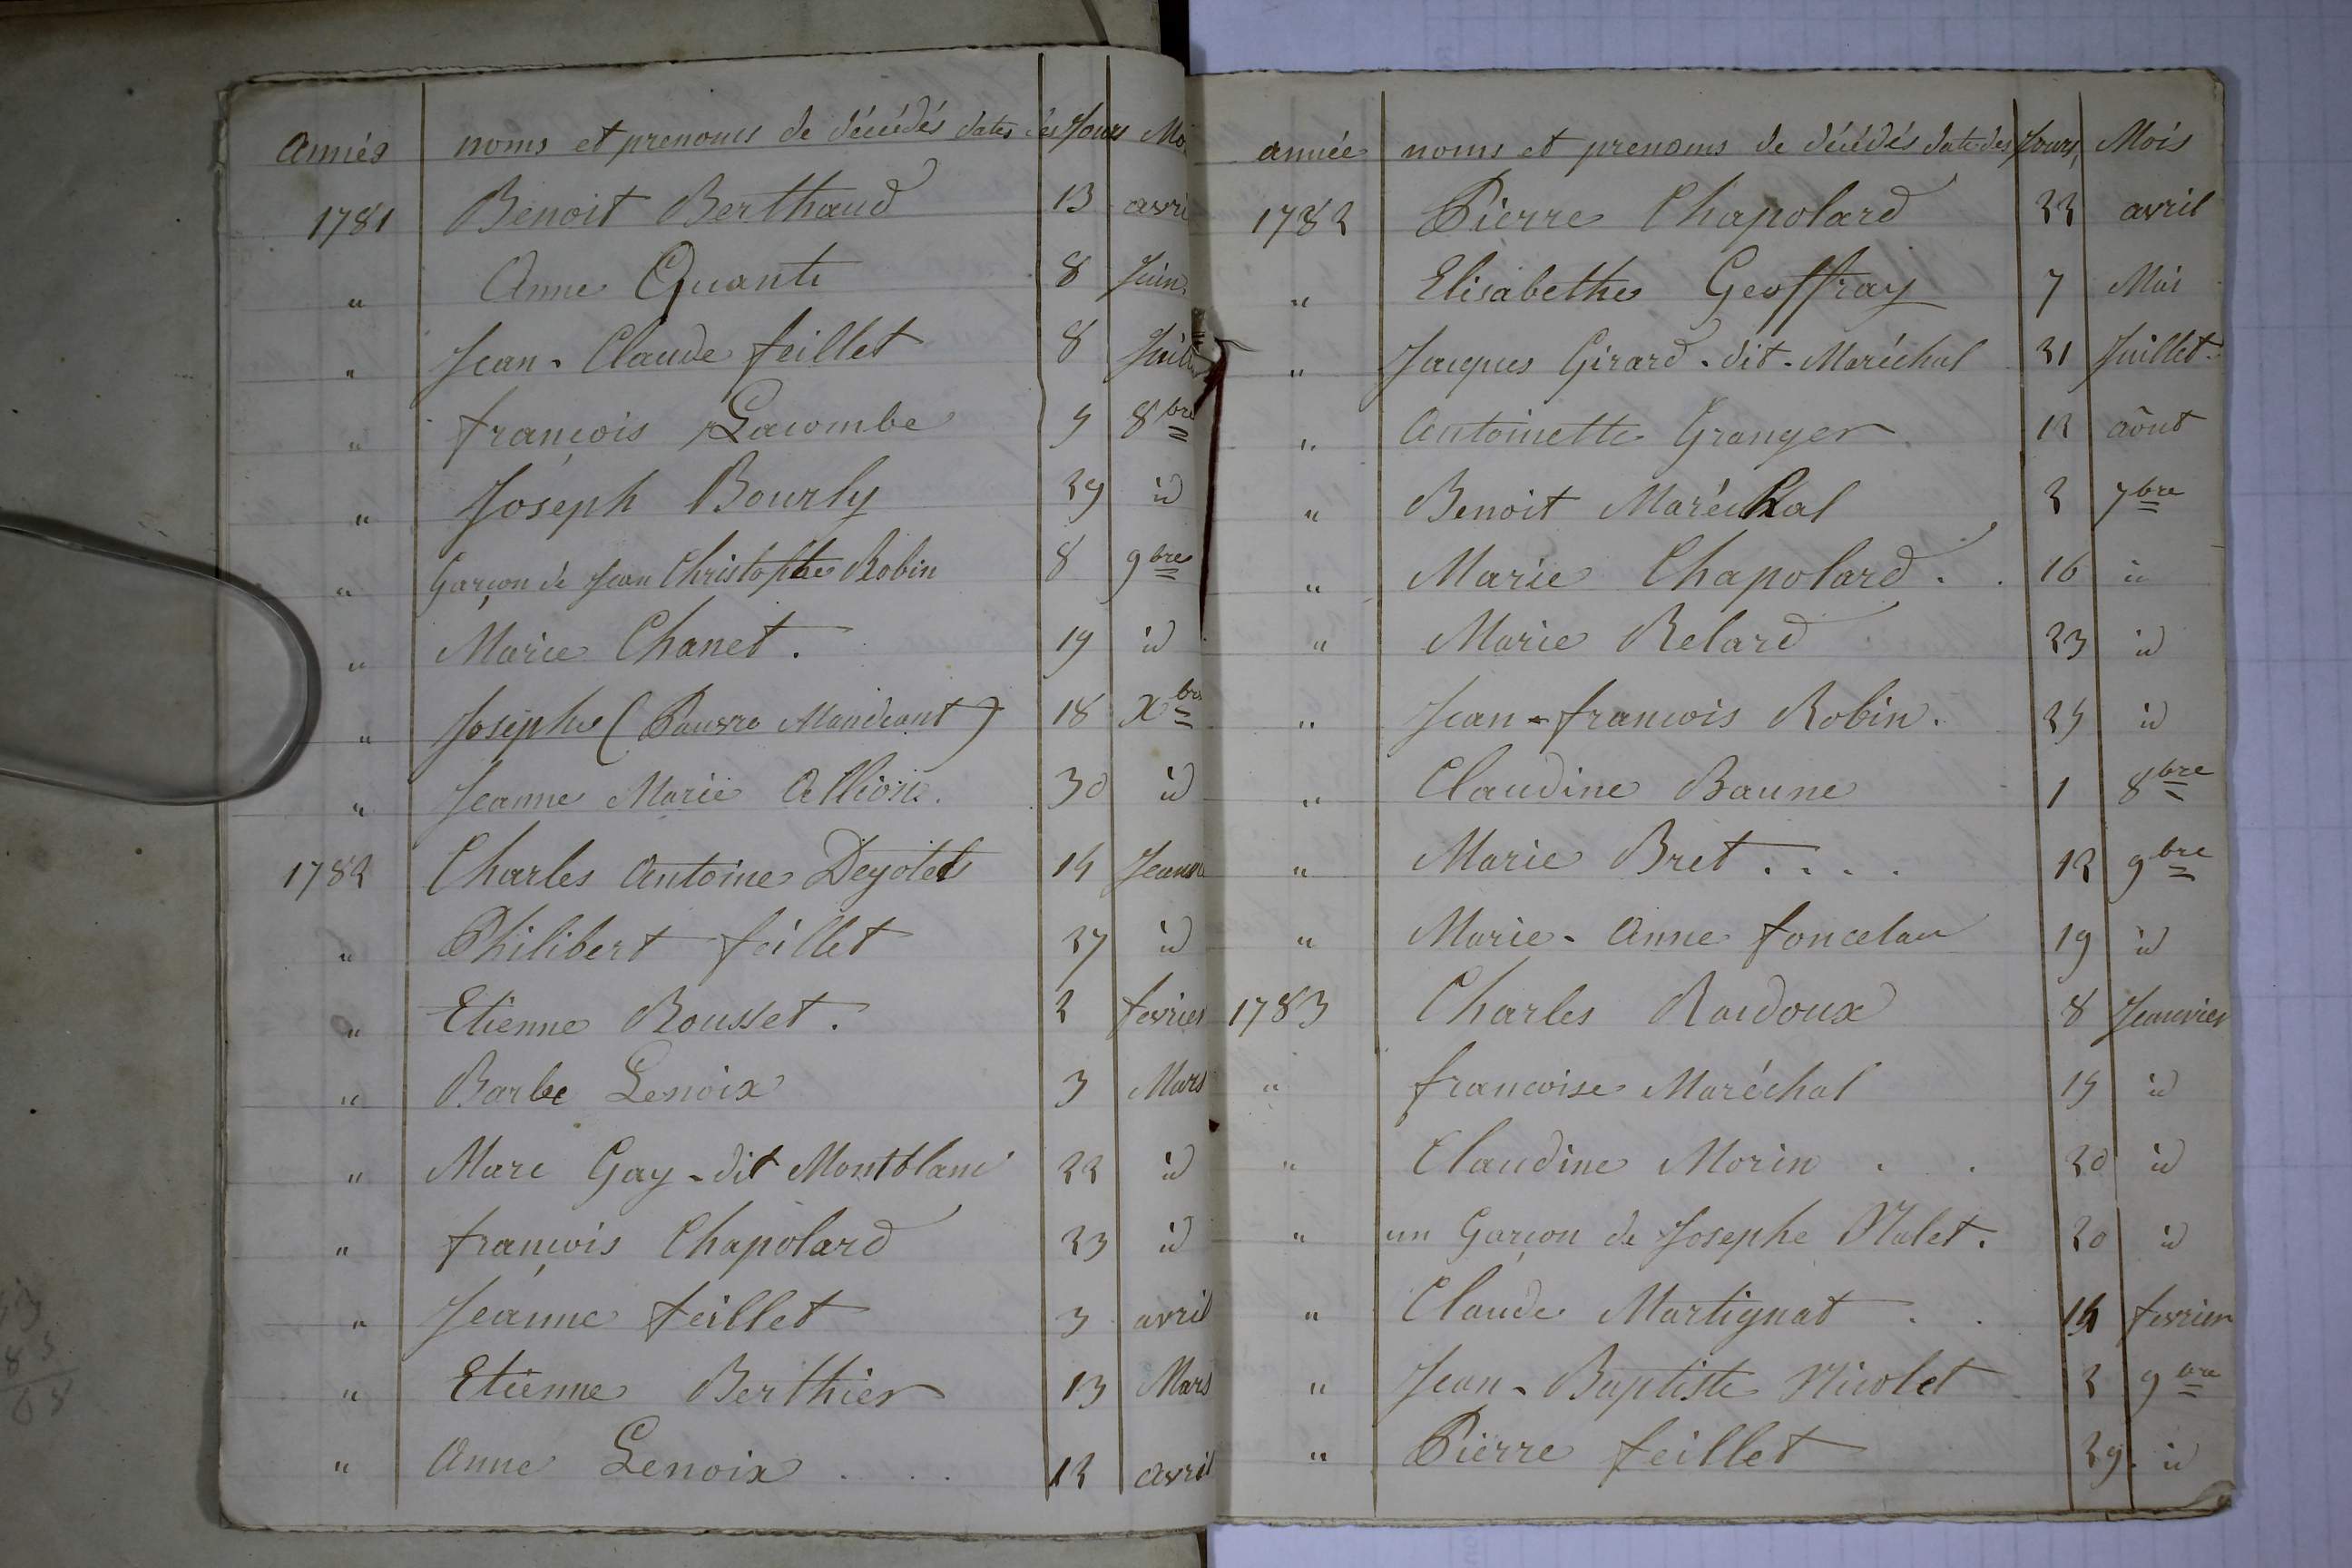 année noms et prenoms de décédés dates des Jours Mo
1781 Benoit Berthaud 13 avri
" Anne Quanti 8 Juin
" Jean-Claude feillet 8 Juill
" françois Lacombe 5 8bre
" Joseph Bourly 29 id
" Garçon de Jean Christophe Robin 8 9bre
" Marie Chanet. 19 id
" Josephe (Pauvre Mandeant) 18 Xbr
" Jeanne Marie Allion. 30 id
1782 Charles Antoine Deyolets 14
" Philibert feillet 27 id
" Etienne Rousset. 2 fevrier
" Barbe Lenoix 3 Mars
" Marc Gay-dit Montblanc 22 id
" françois Chapolard 23 id
" Jeanne feillet 3 avril
" Etienne Berthier 13 Mars
" Anne Lenoix . . . 12 avril
année noms et prenoms de décédés date des Jours, Mois
1782 Pierre Chapolard 22 avril
" Elisabethe Geoffray 7 Mai
" Jacques Girard-dit-Maréchal 21 Juillet
" Antoinette Granger 12 aôut
" Benoit Maréchal 2 7bre
" Marie Chapolard . . 16 id
" Marie Relard 23 id
" Jean-francois Robin. 25 id
" Claudine Baune 1 8bre
" Marie Bret . . . . 12 9bre
" Marie-Anne foncelau 19 id
1783 Charles Raidoux 8 Jeanvier
" francoise Maréchal 15 id
" Claudine Morin . . 20 id
" un Garçon de Josephe Nalet. 20 id
" Claude Martignat . . 14 fevrier
" Jean-Baptiste Nicolet 2 9bre
" Pierre feillet 29. id